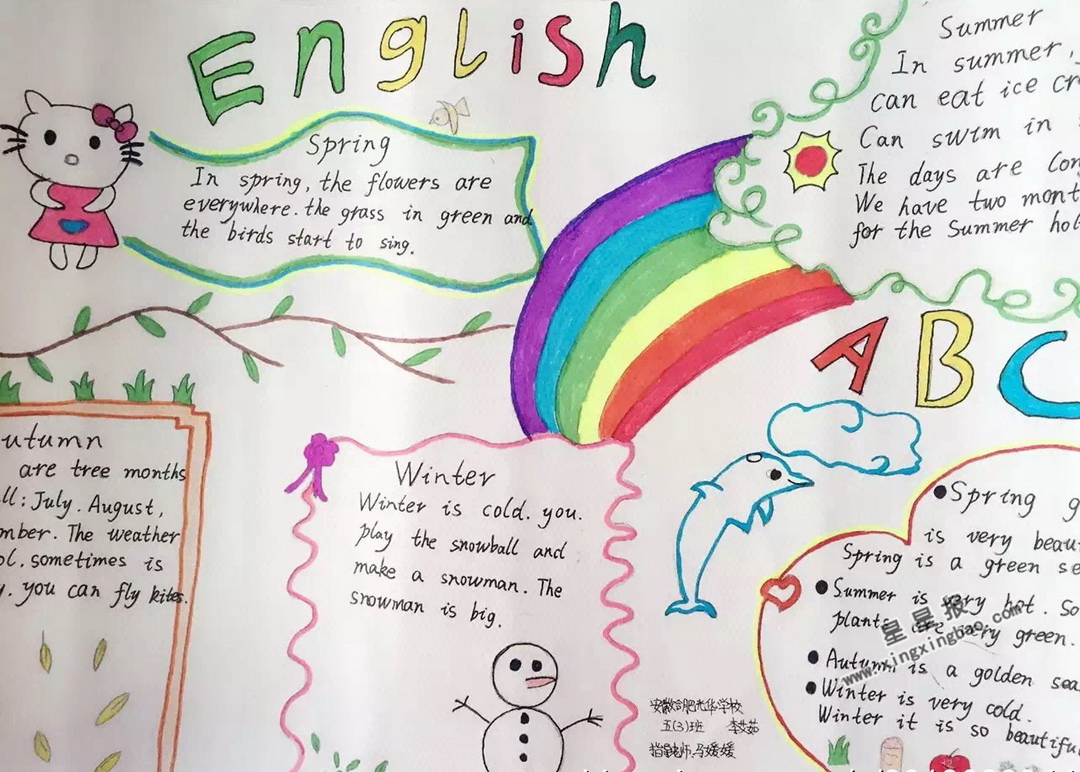 English
Spring
In spring, the flowers are
everywhere. the grass in green and
the birds start to sing.
Summer
In summer,
can eat ice cr
Can swim in
The days are lon
We have two mont
for the Summer hol
ABC
utumn
are tree months
ll: July. August,
mber. The weather
ol. sometimes is
y. you can fly kites.
Winter
Winter is cold. you.
play the snowball and
make a snowman. The
snowman is big.
Spring g
is very beau
Spring is a green se
Summer is very hot. So
plants are very green.
Autumn is a golden sea
Winter is very cold.
Winter it is so beautiful
星星报
www.xingxingbao.com
安徽合肥光华学校
五(3)班
指导老师:马媛媛